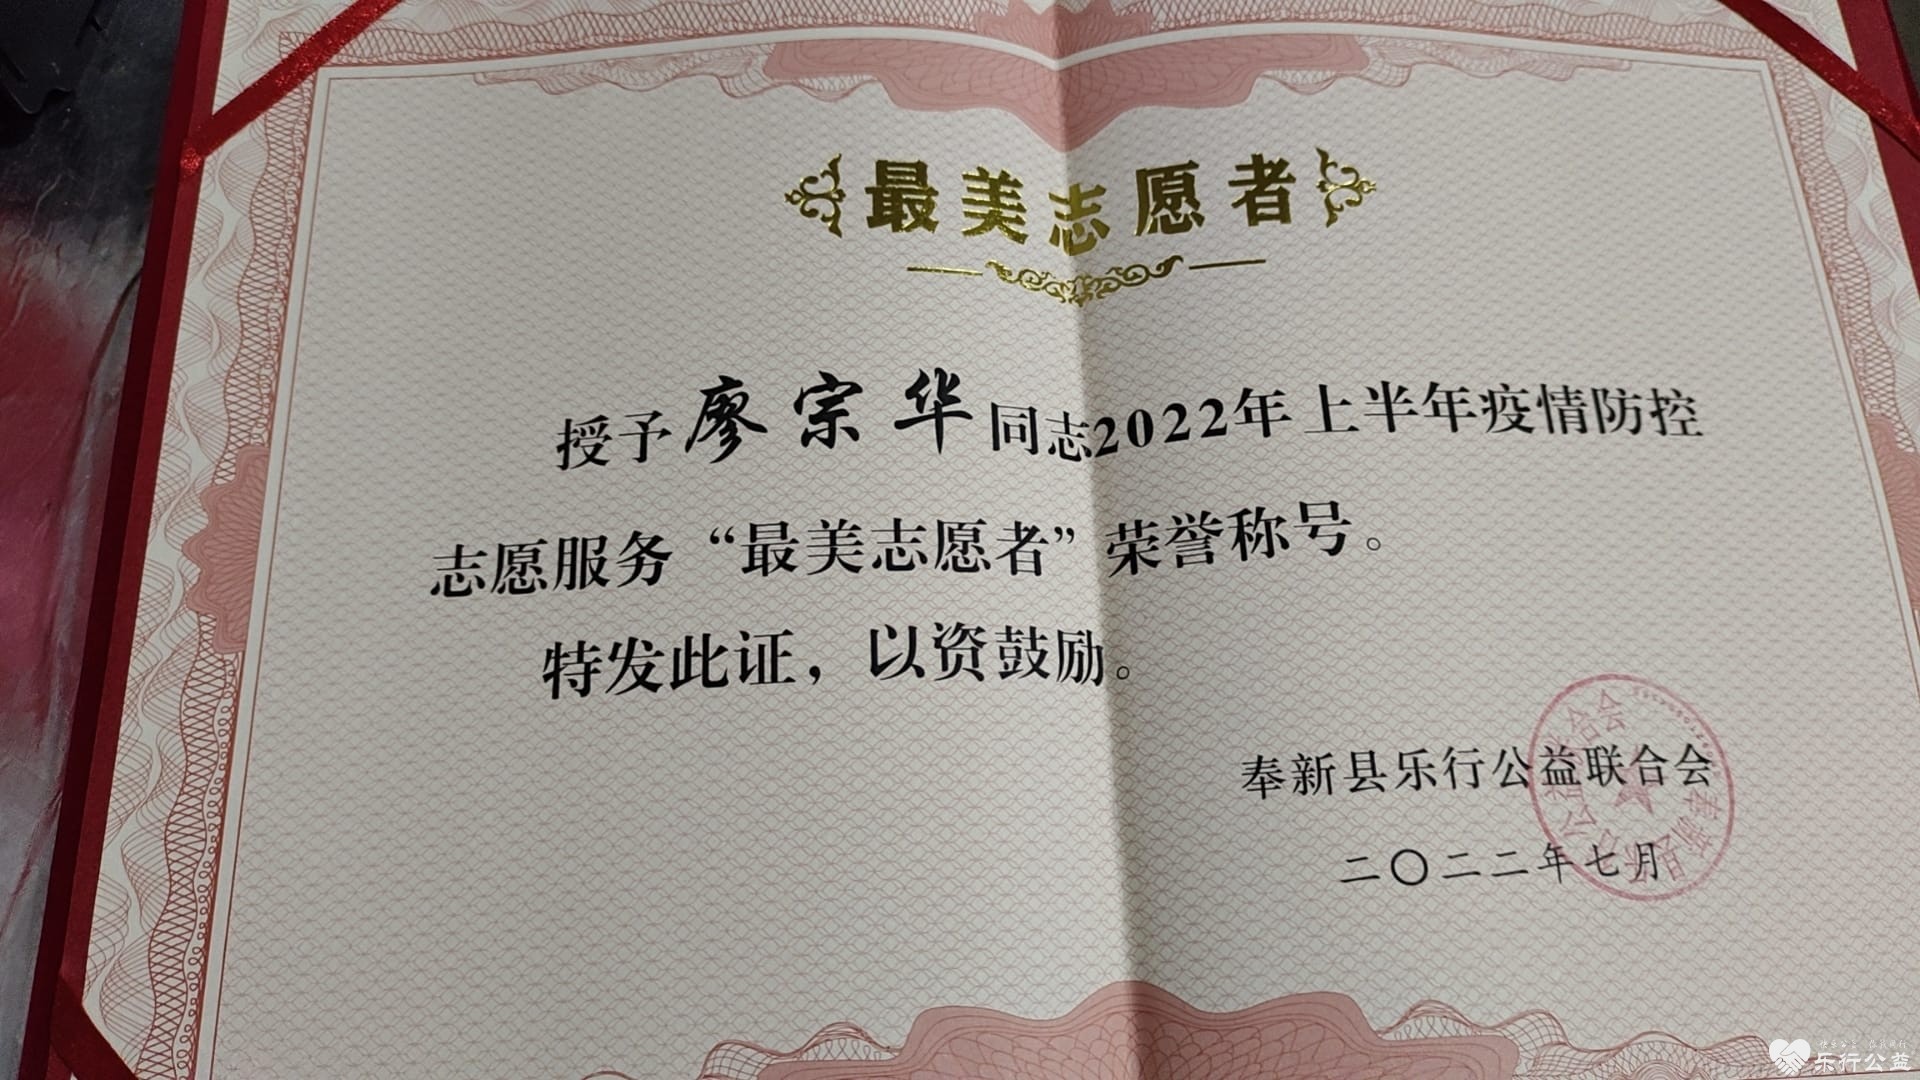 最美志愿者
授予廖宗华同志2022年上半年疫情防控
志愿服务“最美志愿者”荣誉称号。
特发此证，以资鼓励。
奉新县乐行公益联合会
二〇二二年七月
乐行公益